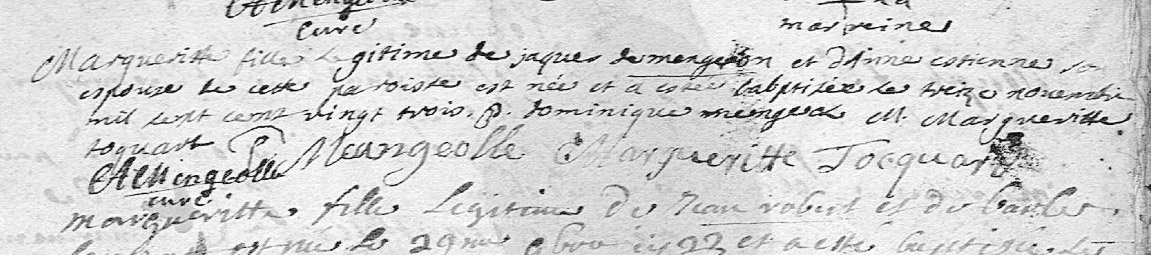 AMengeolle
curé
marreine
Margueritte fille Legitime de jaques demengeon et d'Anne estienne sa
espouze de cette paroisse est née et a estée baptisée le treize novembre
mil sept cent vingt trois. P. dominique mengeol M. Margueritte
toquart
D Meangeolle Margueritte Tocquard
AMengeolle
curé
margueritte fille Legitime De Jean robert et de barbe
est née Le 29me 9bre 1723 et a esté baptisée Le